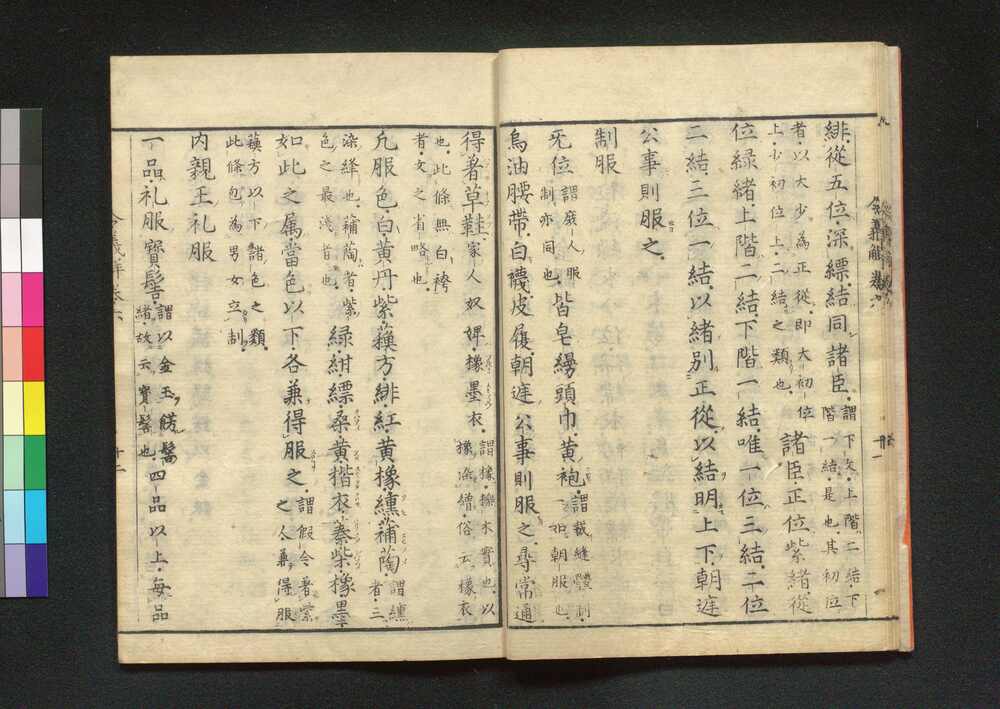 緋。從五位。深縹。結同諸臣。謂下文。上階二結。下階一結是也。其初位
者。以大少為正從。即大初位上。少初位上。二結之類也。諸臣正位紫緒。從
位緑緒。上階二結。下階一結。唯一位三結。二位
二結。三位一結。以緒別正從。以結明上下。朝庭
公事則服之。
制服
无位謂庶人服制亦同也。皆皂縵頭巾。黄袍。謂裁縫體制如朝服也。
烏油腰帯。白襪。皮履。朝庭公事則服之。尋常通
得著草鞋。家人奴婢。橡墨衣。謂橡櫟木實也。以橡染繒。俗云橡衣
也。此條無白袴者。文之省略也。
凡服色。白。黄丹。紫。蘓方。緋。紅。黄橡。纁。蒲陶。謂纁者。三
染絳也。蒲陶者。紫色之最淺者也。緑。紺。縹。桑。黄。揩衣。蓁。柴。橡墨。
如此之属。當色以下。各兼得服之。謂假令著紫之人兼得服
蘓方以下諸色之類。此條包為男女立制。
内親王礼服
一品。礼服寶髻。謂以金玉餝髻緒。故云寶髻也。四品以上。毎品